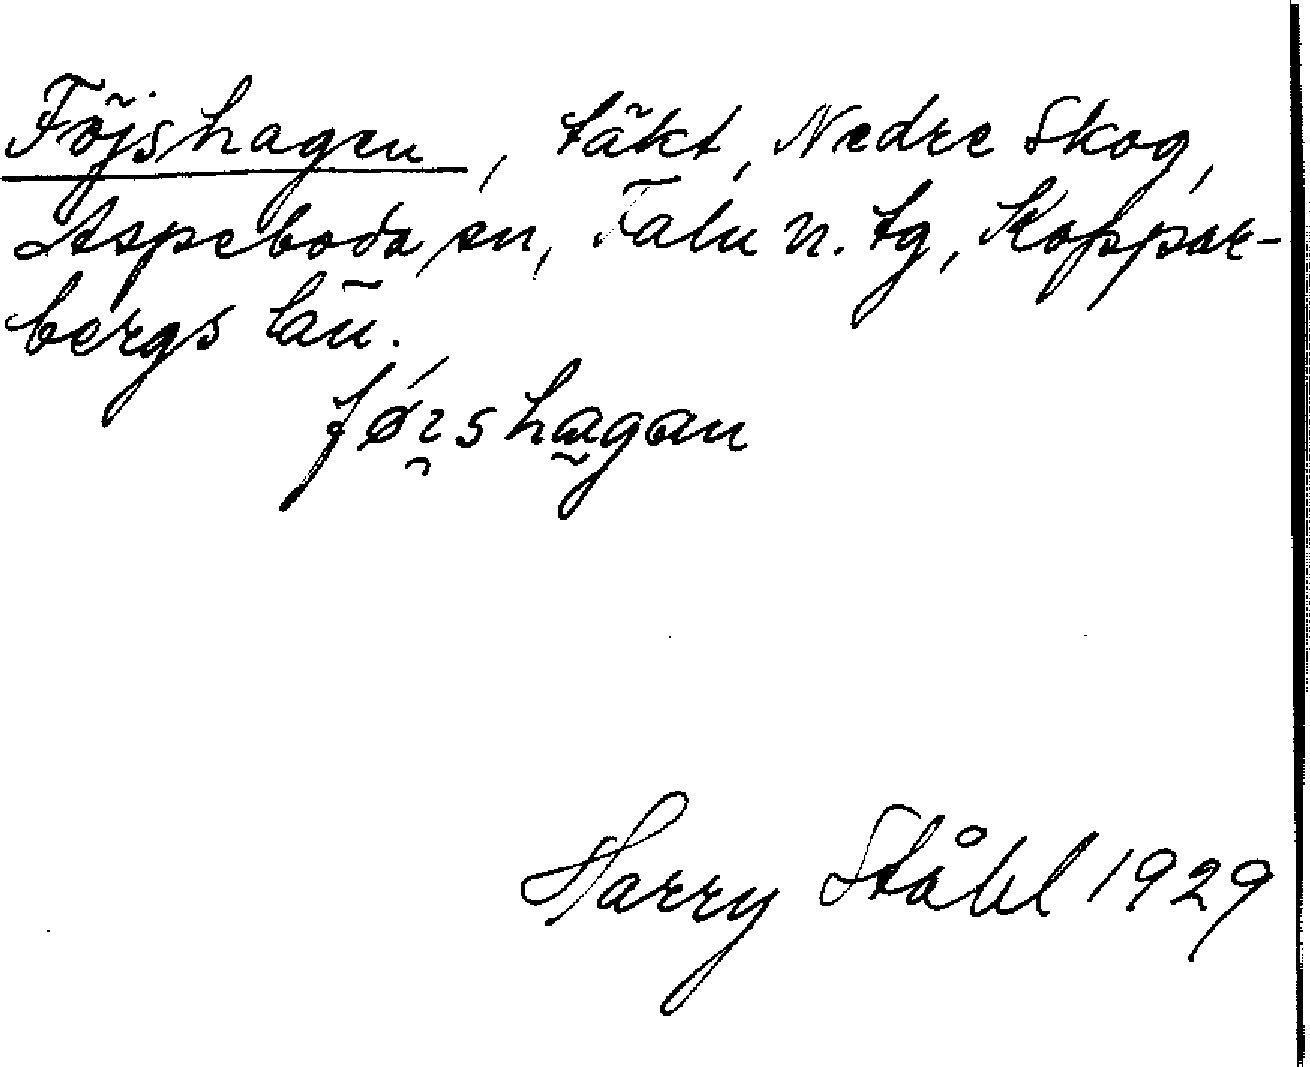 Föjshagen, täkt, Nedre Skog,
Aspeboda sn, Falu n. tg, Koppar-
bergs län.
Harry Ståhl 1929